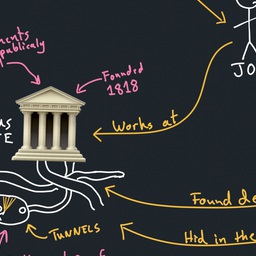 ments
publicaly
Founded
1818
JO
Works at
US
TE
Found de
TUNNELS
Hid in the